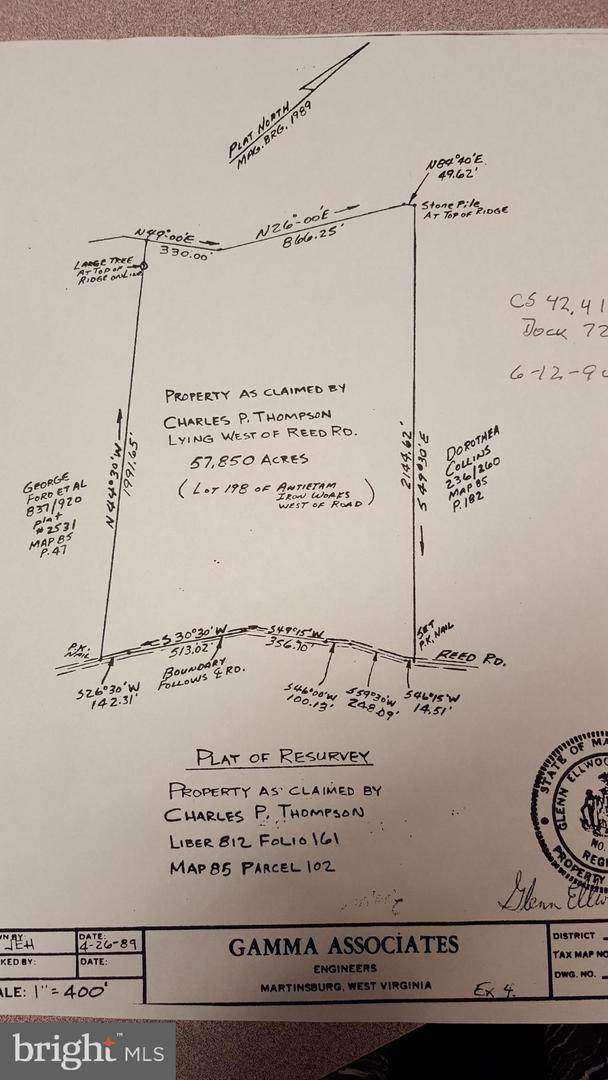 PLAT NORTH
MAG. BRG. 1989
N84°40'E
49.62'
Stone Pile
AT TOP OF RIDGE
N49°00'E
330.00'
N26°-00'E
866.25'
LARGE TREE
AT TOP OF
RIDGE ON LINE
CS 42,41
Dock 72
6-12-9
PROPERTY AS CLAIMED BY
CHARLES P. THOMPSON
LYING WEST OF REED RD.
57.850 ACRES
(LOT 198 OF ANTIETAM
IRON WORKS
WEST OF ROAD)
N44°30'W
1991.65'
2149.62'
S49°30'E
GEORGE
FORD ET AL
837/920
Plat
#2531
MAP 85
P. 47
DOROTHEA
COLLINS
236/260
MAP 85
P. 182
P.K.
NAIL
S30°30'W
513.02'
S49°15'W
356.70'
SET
P.K. NAIL
REED RD.
BOUNDARY
FOLLOWS ℄ RD.
S26°30'W
142.31'
S46°00'W
100.13'
S59°30'W
248.09'
S46°15'W
14.51'
PLAT OF RESURVEY
PROPERTY AS CLAIMED BY
CHARLES P. THOMPSON
LIBER 812 FOLIO 161
MAP 85 PARCEL 102
STATE OF MA
GLENN ELLWO
NO.
REGI
PROPERTY
Glenn Ellw
WN BY
JEH
DATE:
4-26-89
KED BY:
DATE:
ALE: 1" = 400'
GAMMA ASSOCIATES
ENGINEERS
MARTINSBURG, WEST VIRGINIA
Ex 4.
DISTRICT
TAX MAP NO
DWG. NO.
bright MLS